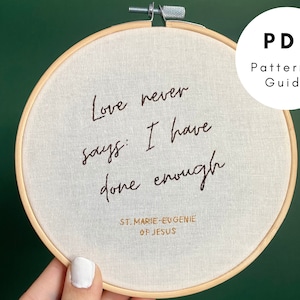 Love never
says: I have
done enough
ST. MARIE-EUGENIE
OF JESUS
PD
Pattern
Guid